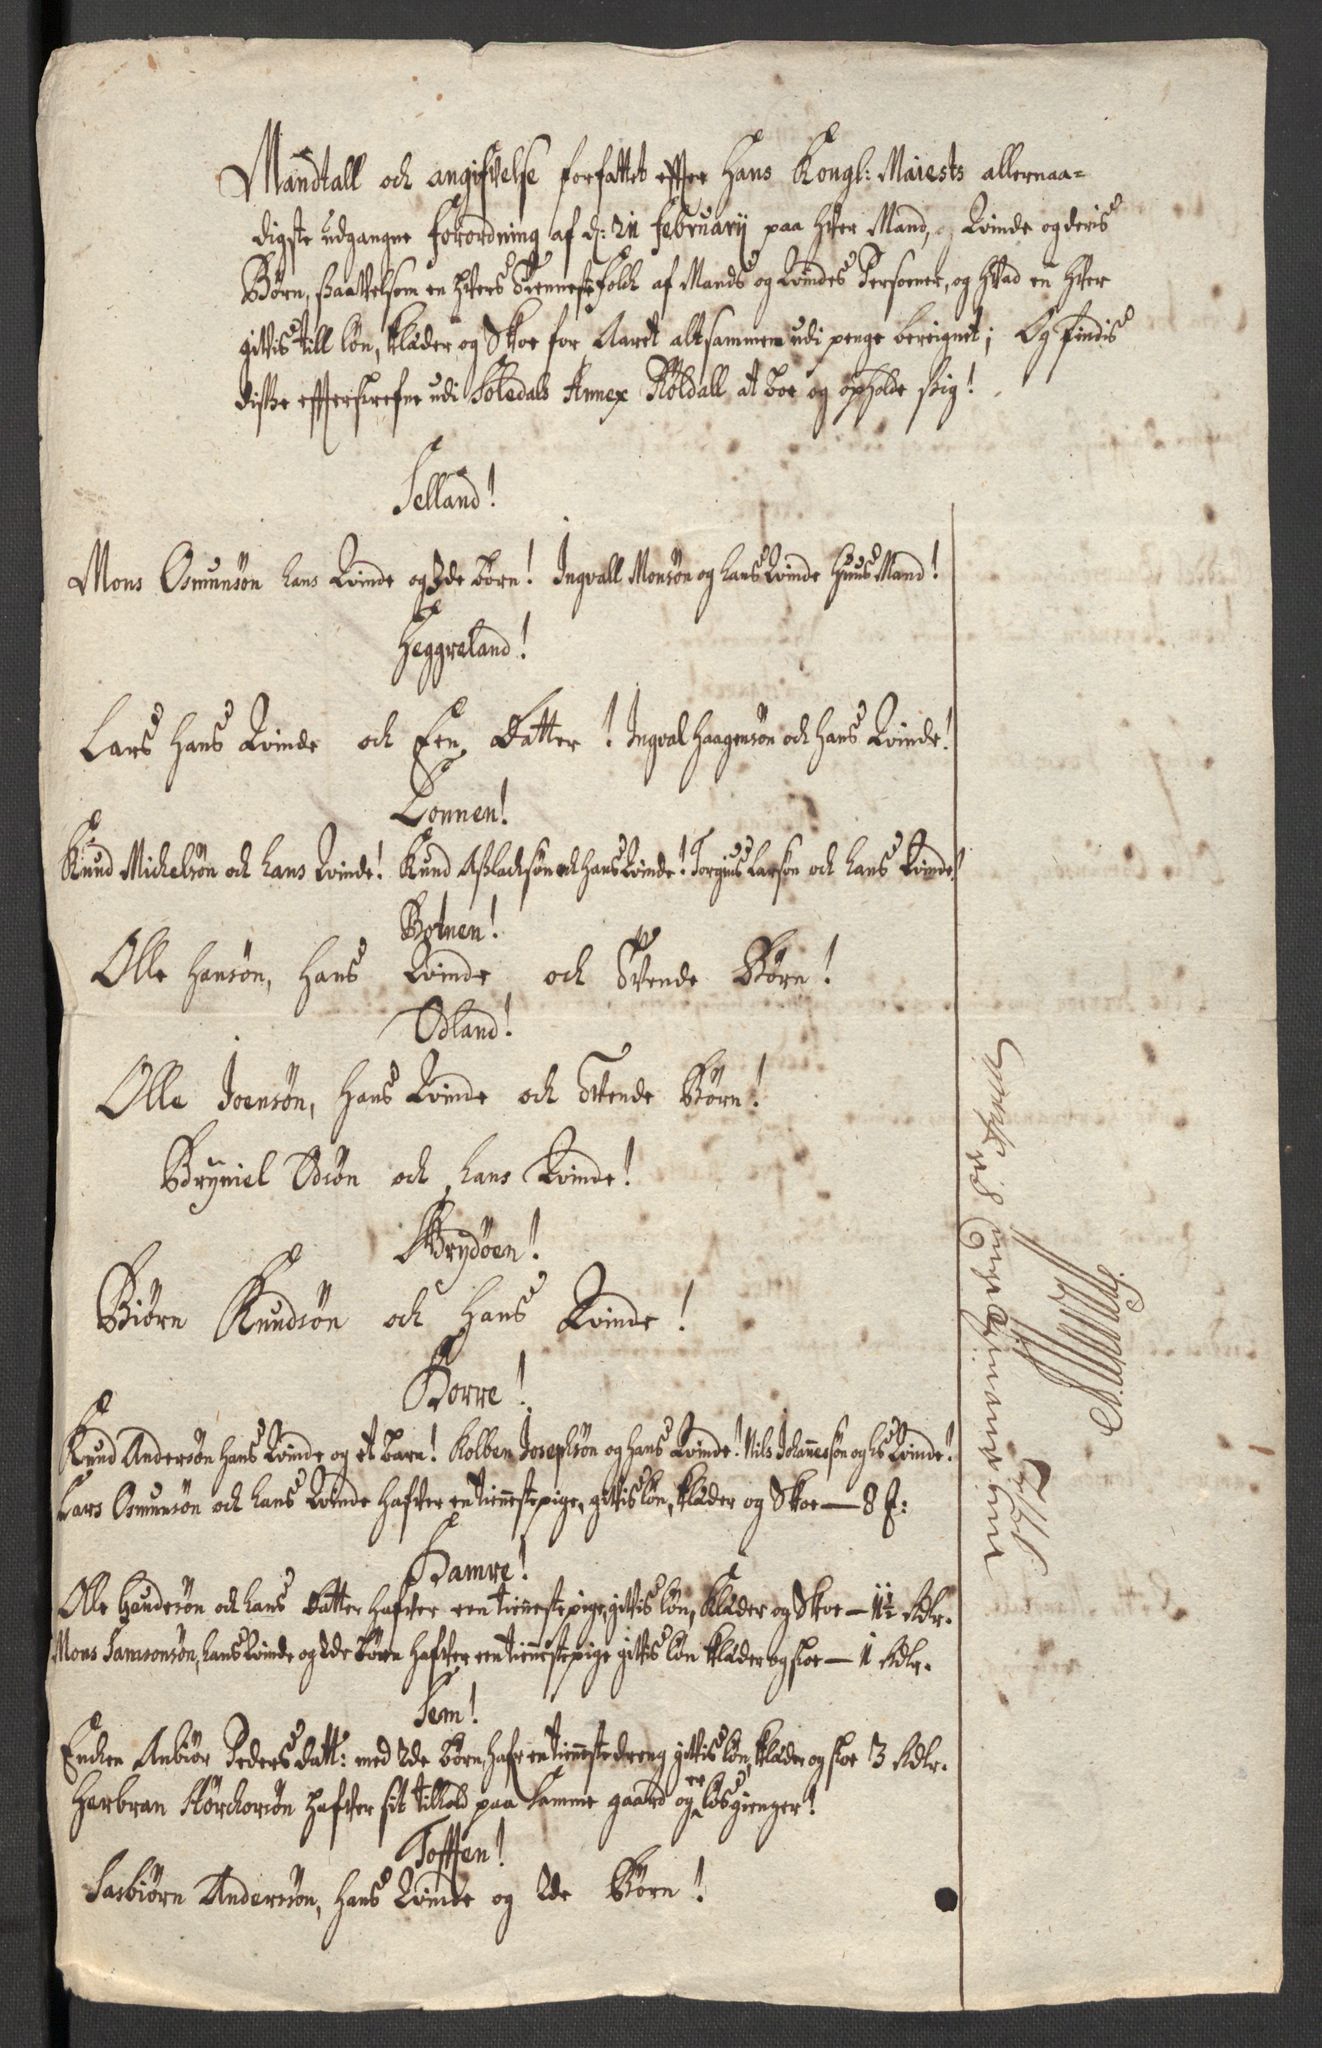 Mandtall och angifvelse forfattet effter Hans Kongl: Maiests allernaa-
digste udgangne forordning af d: 21 februarij paa hver Mand, og Qvinde og deris
Börn, saavelsom en hvers Tienneste folck af Mands og Qvindes Persoener, og hvad en hver
gifvis till lön, klæder og Skoe for Aaret altsammen udi penge bereignet; Og findis
disse effterskrefne udi Soledals Annex Röldall at boe og opholde sig!
Selland!
Mons Osmunsön hans Qvinde og 3de börn! Ingvall Monsön og hans Qvinde HuusMand!
Heggreland!
Lars hans Qvinde och Een Datter! Ingval Haagensön och hans Qvinde!
Lonnen!
Knud Michelsön och hans Qvinde! Knud Aslachsön och hans Qvinde! Torgius Larsön och hans Qvinde!
Botnen!
Olle Hansön, hans Qvinde och Tvende Börn!
Udland!
Olle Joensön, hans Qvinde och Tvende Börn!
Bryniel Odsön och hans Qvinde!
Brydöen!
Biörn Knudsön och Hans Qvinde!
Horre!
Knud Andersön hans Qvinde og et barn! Kolben Josephsön og hans Qvinde! Nils Johannessön og hs Qvinde!
Lars Osmunsön och hans Qvinde hafver en tiennestepige, gifvis lön, klæder og Skoe — 8 f:
Hamre!
Olle Gundersön och hans Datter hafver een tiennestepige, gifvis lön, klæder og Skoe — 1½ Rdlr.
Mons Samsonsön, hans Qvinde og 2de Börn hafver een tiennestepige gifvis lön klæder og skoe — 1 Rdlr.
Sem!
Enchen Anbiör Peders datt: med 2de börn, hafr en tiennestedreng gifvis lön, klæder og skoe 3 Rdlr.
Herbran hafver sit tilhold paa samme gaard og er lösgienger!
Tofften!
Sasbiörn Anderssön, hans Qvinde og 2de Börn!